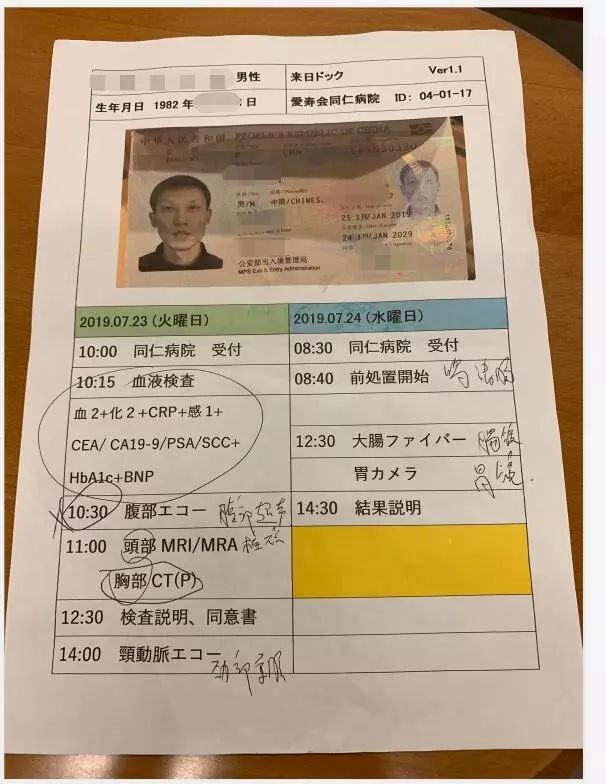 男性 来日ドック Ver1.1
生年月日 1982 年 日 愛寿会同仁病院 ID: 04-01-17
中华人民共和国 PEOPLE'S REPUBLIC OF CHINA
CHN
男/M 中国/CHINES
25 1月/JAN 2019
24 1月/JAN 2029
公安部出入境管理局
MPS Exit & Entry Administration
2019.07.23 (火曜日) 2019.07.24 (水曜日)
10:00 同仁病院 受付 08:30 同仁病院 受付
10:15 血液検査 08:40 前処置開始
血 2+化 2 +CRP+感 1+
CEA/ CA19-9/PSA/SCC+ 12:30 大腸ファイバー 肠镜
HbA1c+BNP 胃カメラ 胃镜
10:30 腹部エコー 腹部超声 14:30 結果説明
11:00 頭部 MRI/MRA 检şi
胸部 CT(P)
12:30 検査説明、同意書
14:00 頸動脈エコー